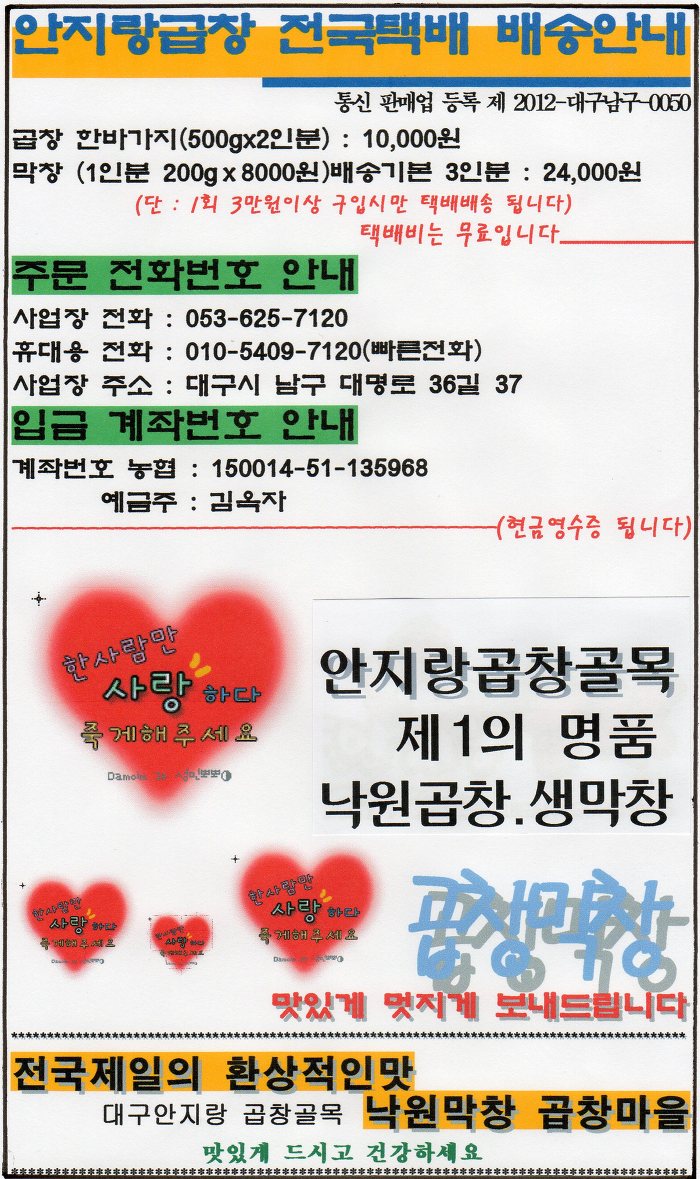 안지랑곱창 전국택배 배송안내
통신 판매업 등록 제 2012-대구남구-0050
곱창 한바가지(500gx2인분) : 10,000원
막창 (1인분 200gx8000원)배송기본 3인분 : 24,000원
(단 : 1회 3만원이상 구입시만 택배배송 됩니다)
택배비는 무료입니다
주문 전화번호 안내
사업장 전화 : 053-625-7120
휴대용 전화 : 010-5409-7120(빠른전화)
사업장 주소 : 대구시 남구 대명로 36길 37
입금 계좌번호 안내
계좌번호 농협 : 150014-51-135968
예금주 : 김옥자
(현금영수증 됩니다)
한사람만
사랑하다
죽게해주세요
안지랑곱창골목
제1의 명품
낙원곱창.생막창
한사람만
사랑하다
죽게해주세요
한사람만
사랑하다
죽게해주세요
한사람만
사랑하다
죽게해주세요
곱창막창
맛있게 멋지게 보내드립니다
전국제일의 환상적인맛
대구안지랑 곱창골목 낙원막창 곱창마을
맛있게 드시고 건강하세요